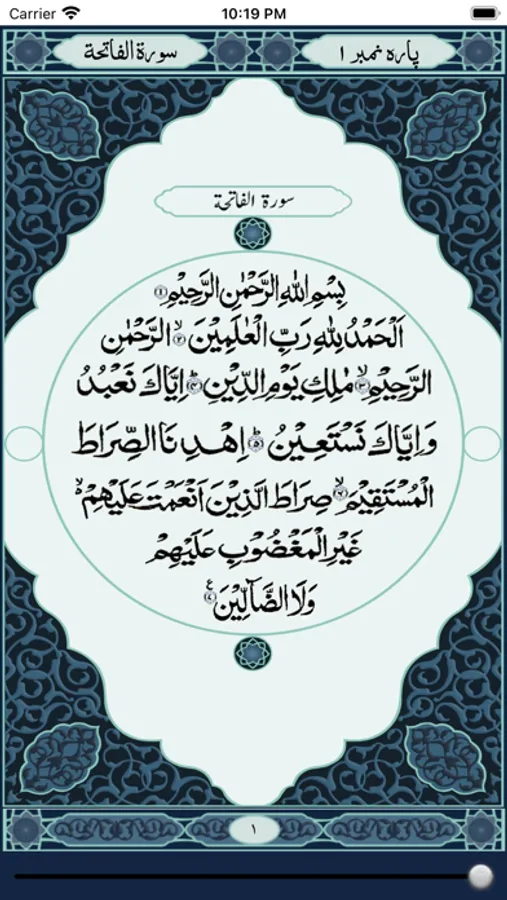 Carrier 10:19 PM
پاره نمبر ۱ سورة الفاتحة
سورة الفاتحة
بِسْمِ اللّٰهِ الرَّحْمٰنِ الرَّحِيْمِ ۝۱
اَلْحَمْدُ لِلّٰهِ رَبِّ الْعٰلَمِيْنَ ۙ۝۲ الرَّحْمٰنِ
الرَّحِيْمِ ۙ۝۳ مٰلِكِ يَوْمِ الدِّيْنِ ؕ۝۴ اِيَّاكَ نَعْبُدُ
وَاِيَّاكَ نَسْتَعِيْنُ ؕ۝۵ اِهْدِنَا الصِّرَاطَ
الْمُسْتَقِيْمَ ۙ۝ صِرَاطَ الَّذِيْنَ اَنْعَمْتَ عَلَيْهِمْ ۙ
غَيْرِ الْمَغْضُوْبِ عَلَيْهِمْ
وَلَا الضَّآلِّيْنَ ۝ ع
۱